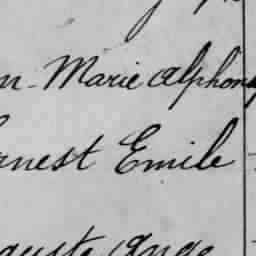 n-Marie Alphons
rnest Emile
guste Ange